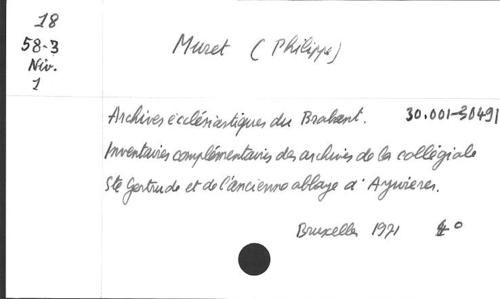 18
58-3
Niv.
1
Muret (Philippe)
Archives ecclésiastiques du Brabant. 30.001-30491
Inventaires complémentaires des archives de la collégiale
Ste Gertrude et de l'ancienne abbaye d'Aywieres.
Bruxelles 1971 4°